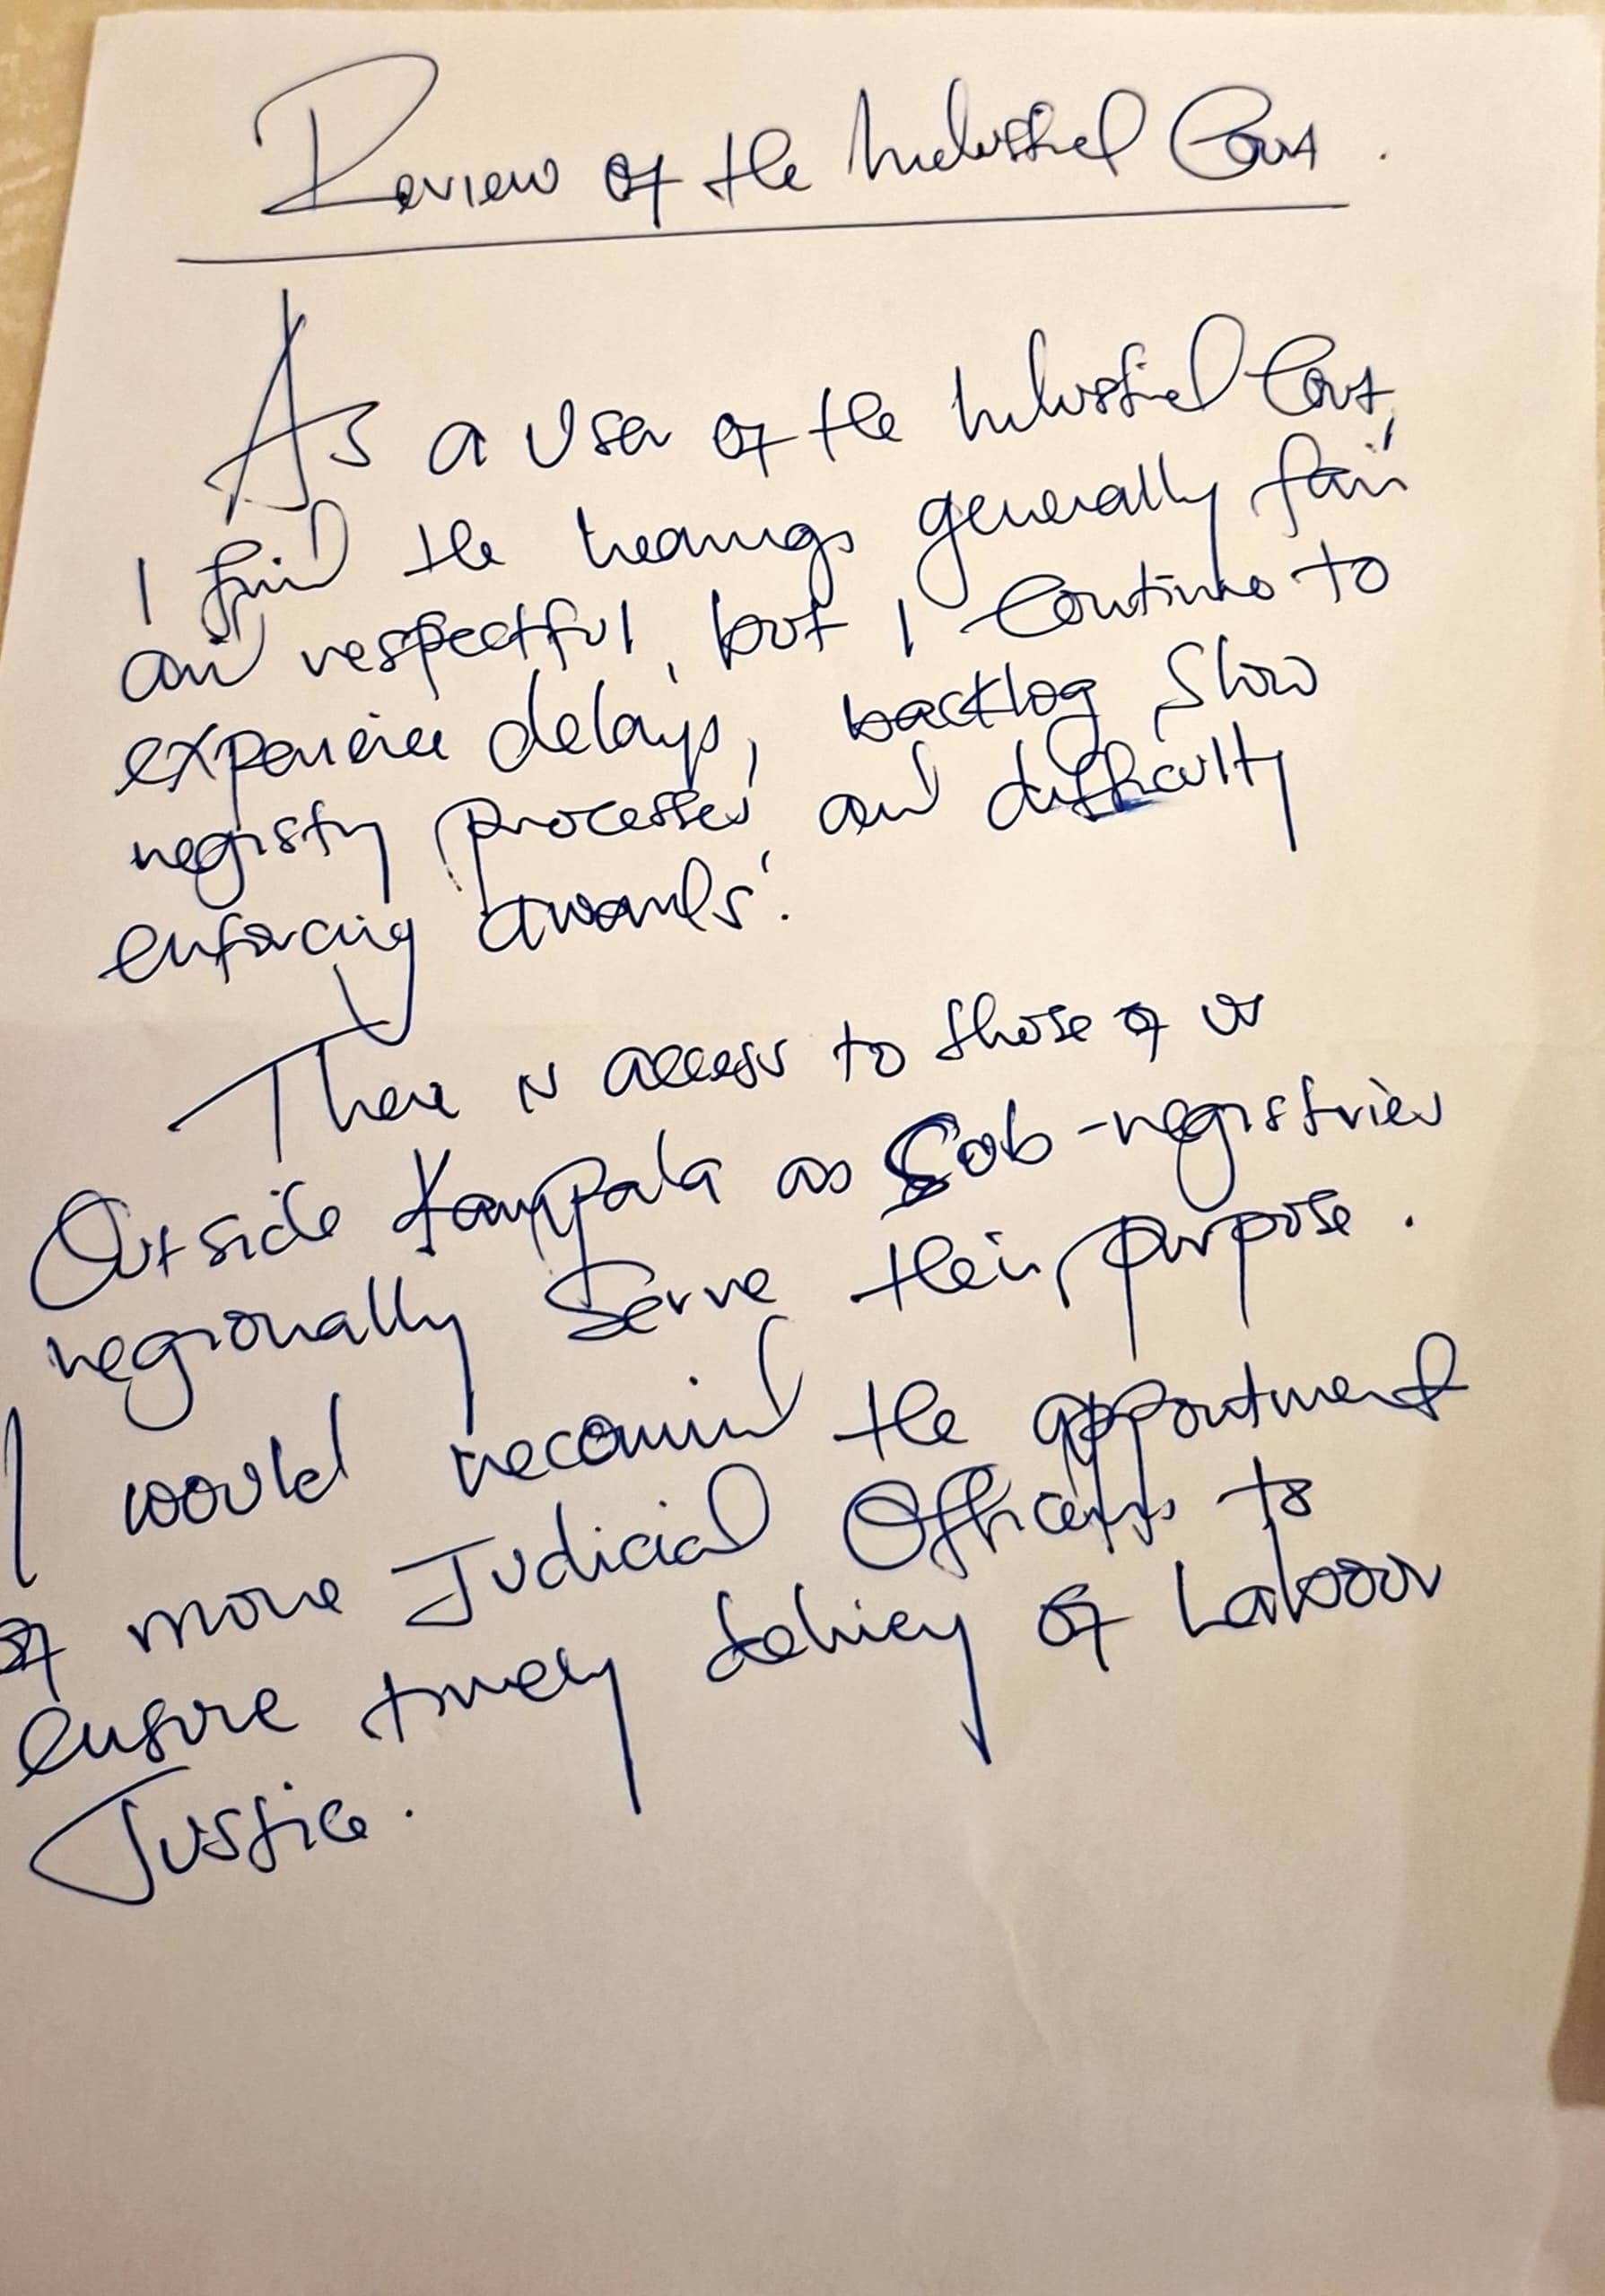 Review of the Industrial Court.
As a user of the Industrial Court,
I find the hearings generally fair
and respectful, but I continue to
experience delays, backlog slow
registry processes and difficulty
enforcing awards.
There is access to those of us
Outside Kampala as Sub-registries
regionally serve their purpose.
I would recommend the appointment
of more Judicial Officers to
ensure timely delivery of Labour
Justice.